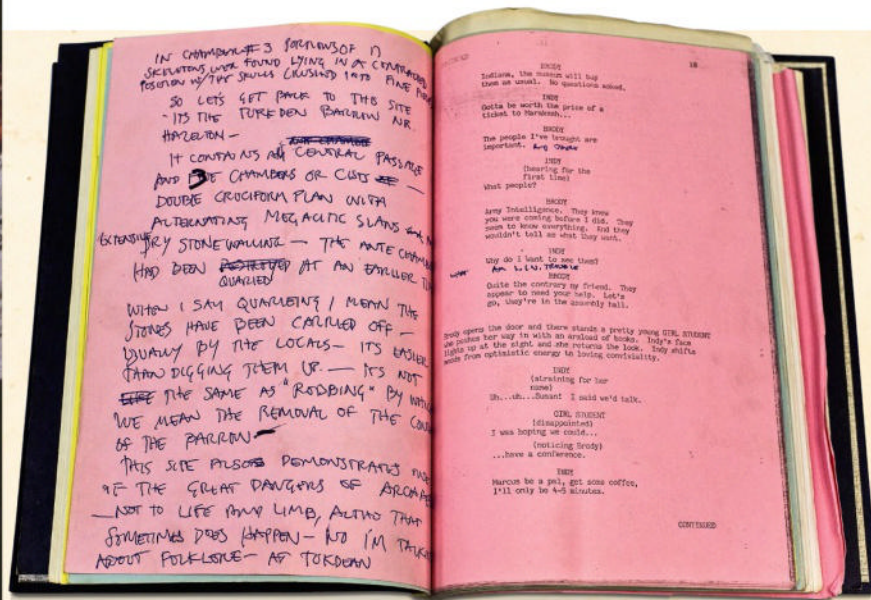 IN CHAMBER #3 PORTIONS OF 
SKELETONS WERE FOUND LYING IN A CONTRACTED
POSITION W/THE SKULLS CRUSHED INTO FINE
SO LETS GET BACK TO THIS SITE
- ITS THE BARROW NR
HAZELTON -
IT CONTAINS A CENTRAL PASSAGE
AND 3 CHAMBERS OR CISTS —
DOUBLE CRUCIFORM PLAN WITH
ALTERNATING MEGALITIC SLABS
EXTENSIVE DRY STONE WALLING — THE ANTE CHAMB
HAD BEEN DESTROYED AT AN EARLIER
QUARIED
WHEN I SAY QUARRING I MEAN THE
STONES HAVE BEEN CARRIED OFF —
USUALLY BY THE LOCALS — ITS EASIER
THAN DIGGING THEM UP — IT'S NOT
THE SAME AS "ROBBING" BY
WE MEAN THE REMOVAL OF THE
OF THE BARROW
THIS SITE ALSO DEMONSTRATES
OF THE GREAT DANGERS OF
— NOT TO LIFE AND LIMB, ALTHO THAT
SOMETIMES DOES HAPPEN — NO I'M
ABOUT FOLKLORE — AT
18
BRODY
Indiana, the museum will buy
them as usual. No questions asked.
INDY
Gotta be worth the price of a
ticket to Marakesh...
BRODY
The people I've brought are
important.
INDY
(hearing for the
first time)
What people?
BRODY
Army Intelligence. They knew
you were coming before I did. They
seem to know everything. And they
wouldn't tell me what they want.
INDY
Why do I want to see them?
WHAT AM I IN, TROUBLE
BRODY
Quite the contrary my friend. They
appear to need your help. Let's
go, they're in the assembly hall.
Brody opens the door and there stands a pretty young GIRL STUDENT
She pushes her way in with an armload of books. Indy's face
lights up at the sight and she returns the look. Indy shifts
moods from optimistic energy to loving conviviality.
INDY
(straining for her
name)
Uh...uh...Susan! I said we'd talk.
GIRL STUDENT
(disappointed)
I was hoping we could...
(noticing Brody)
...have a conference.
INDY
Marcus be a pal, get some coffee,
I'll only be 4-5 minutes.
CONTINUED